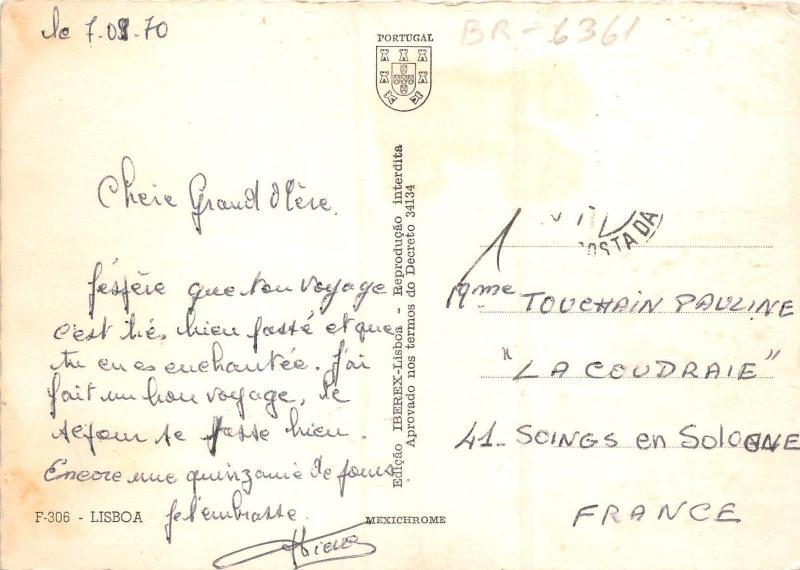 le 7.08.70
PORTUGAL
BR-6361
Chère Grand Mère.
J'éspère que ton voyage
c'est très bien passé et que
tu en es enchantée. J'ai
fait un bon voyage, le
séjour se passe bien.
Encore une quinzanie de jours
je t'embrasse.
F-306 - LISBOA
Edição IBEREX-Lisboa - Reprodução interdita
Aprovado nos termos do Decreto 34134
MEXICHROME
OSTA DA
Mme TOUCHAIN PAULINE
"LA COUDRAIE"
41- SOINGS en SOLOGNE
FRANCE